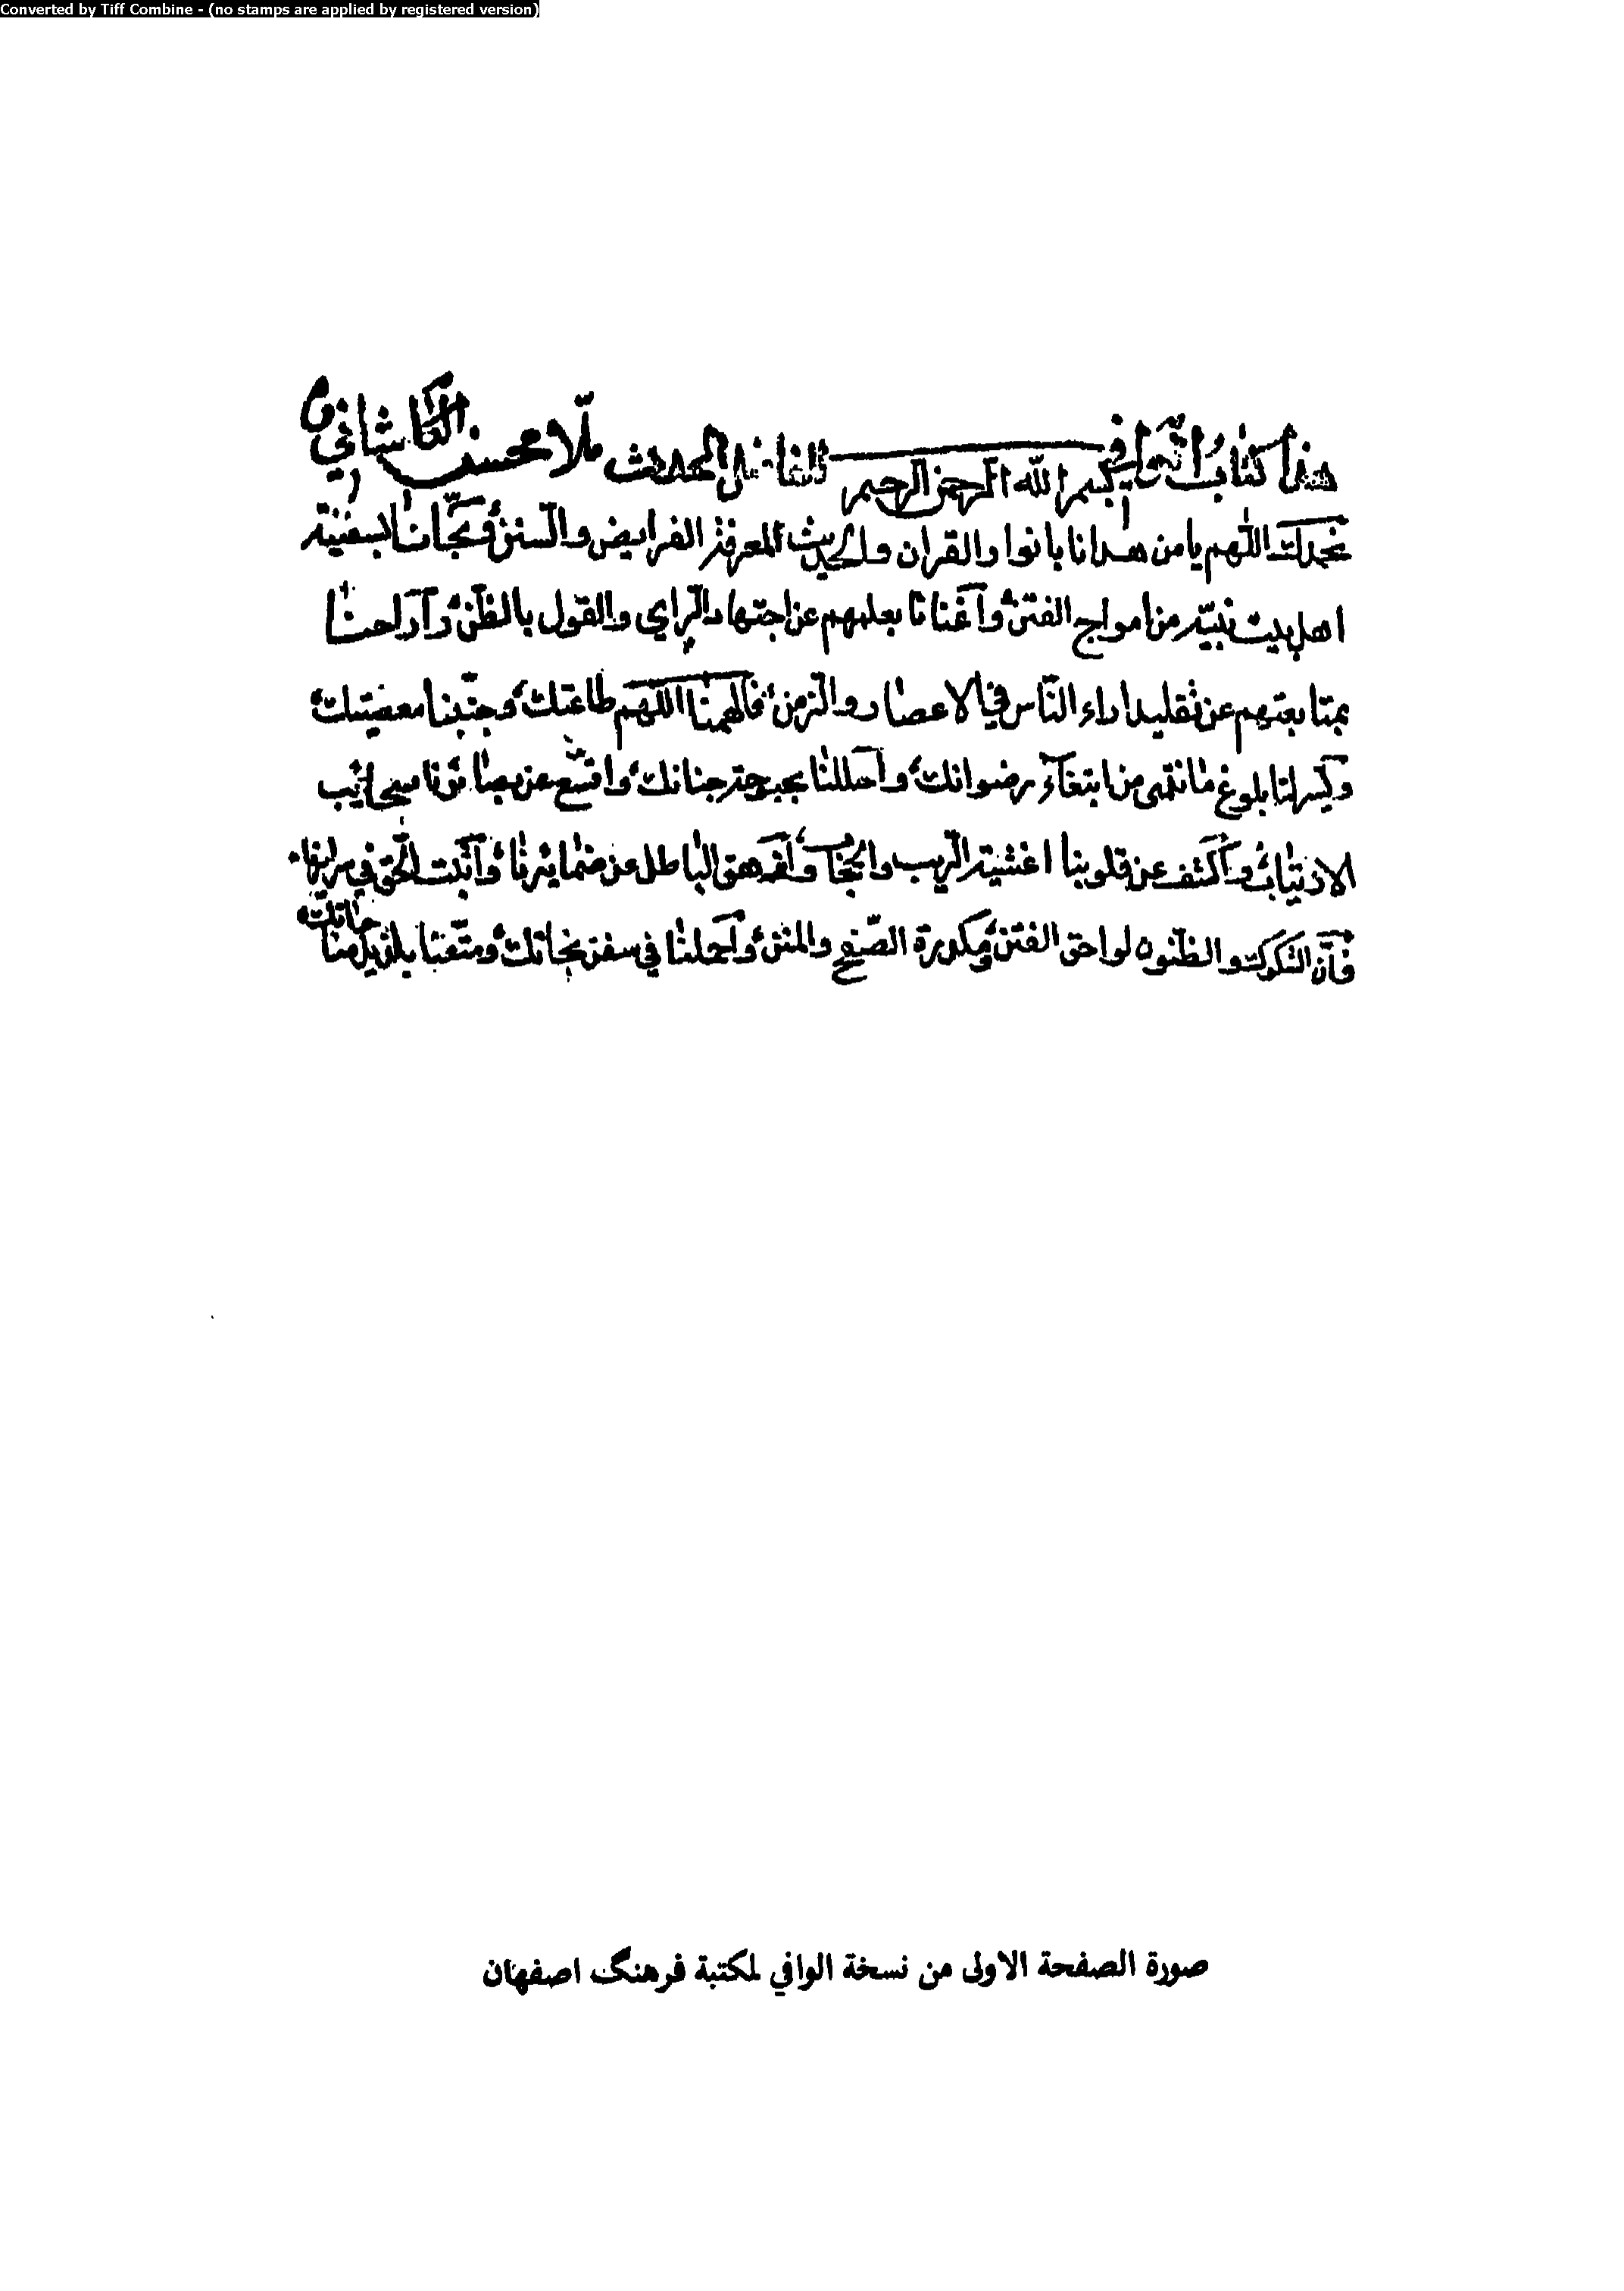 Converted by Tiff Combine - (no stamps are applied by registered version)
هذا كتاب الوافي للفاضل المحدث ملا محسن الكاشاني
بسم الله الرحمن الرحيم
نحمدك اللهم يا من هدانا بانوار القران والحديث لمعرفة الفرايض والسنن ونجّانا بسفينة
اهل بيت نبيّه من امواج الفتن وآغنانا بعلمهم عن اجتهاد الراي والقول بالظّن وآراحنا
بمتابعتهم عن تقليد اراء النّاس في الاعصار والزمن فالهمنا اللهم طاعتك وجنّبنا معصيتك
ويسّر لنا بلوغ ما نتمنى من ابتغاء رضوانك واحللنا بحبوحة جنانك واقشع عن بصائرنا سحائب
الارتياب واكشف عن قلوبنا اغشية الريب والحجاب وازهق الباطل عن ضمايرنا وآثبت الحق في سرايرنا
فانّ الشكوك والظنون لواحق الفتن ومكدرة الصّفح والمنن وآحملنا في سفن نجاتك ومتّعنا بلذيذ مناجاتك
صورة الصفحة الاولى من نسخة الوافي لمكتبة فرهنگ اصفهان